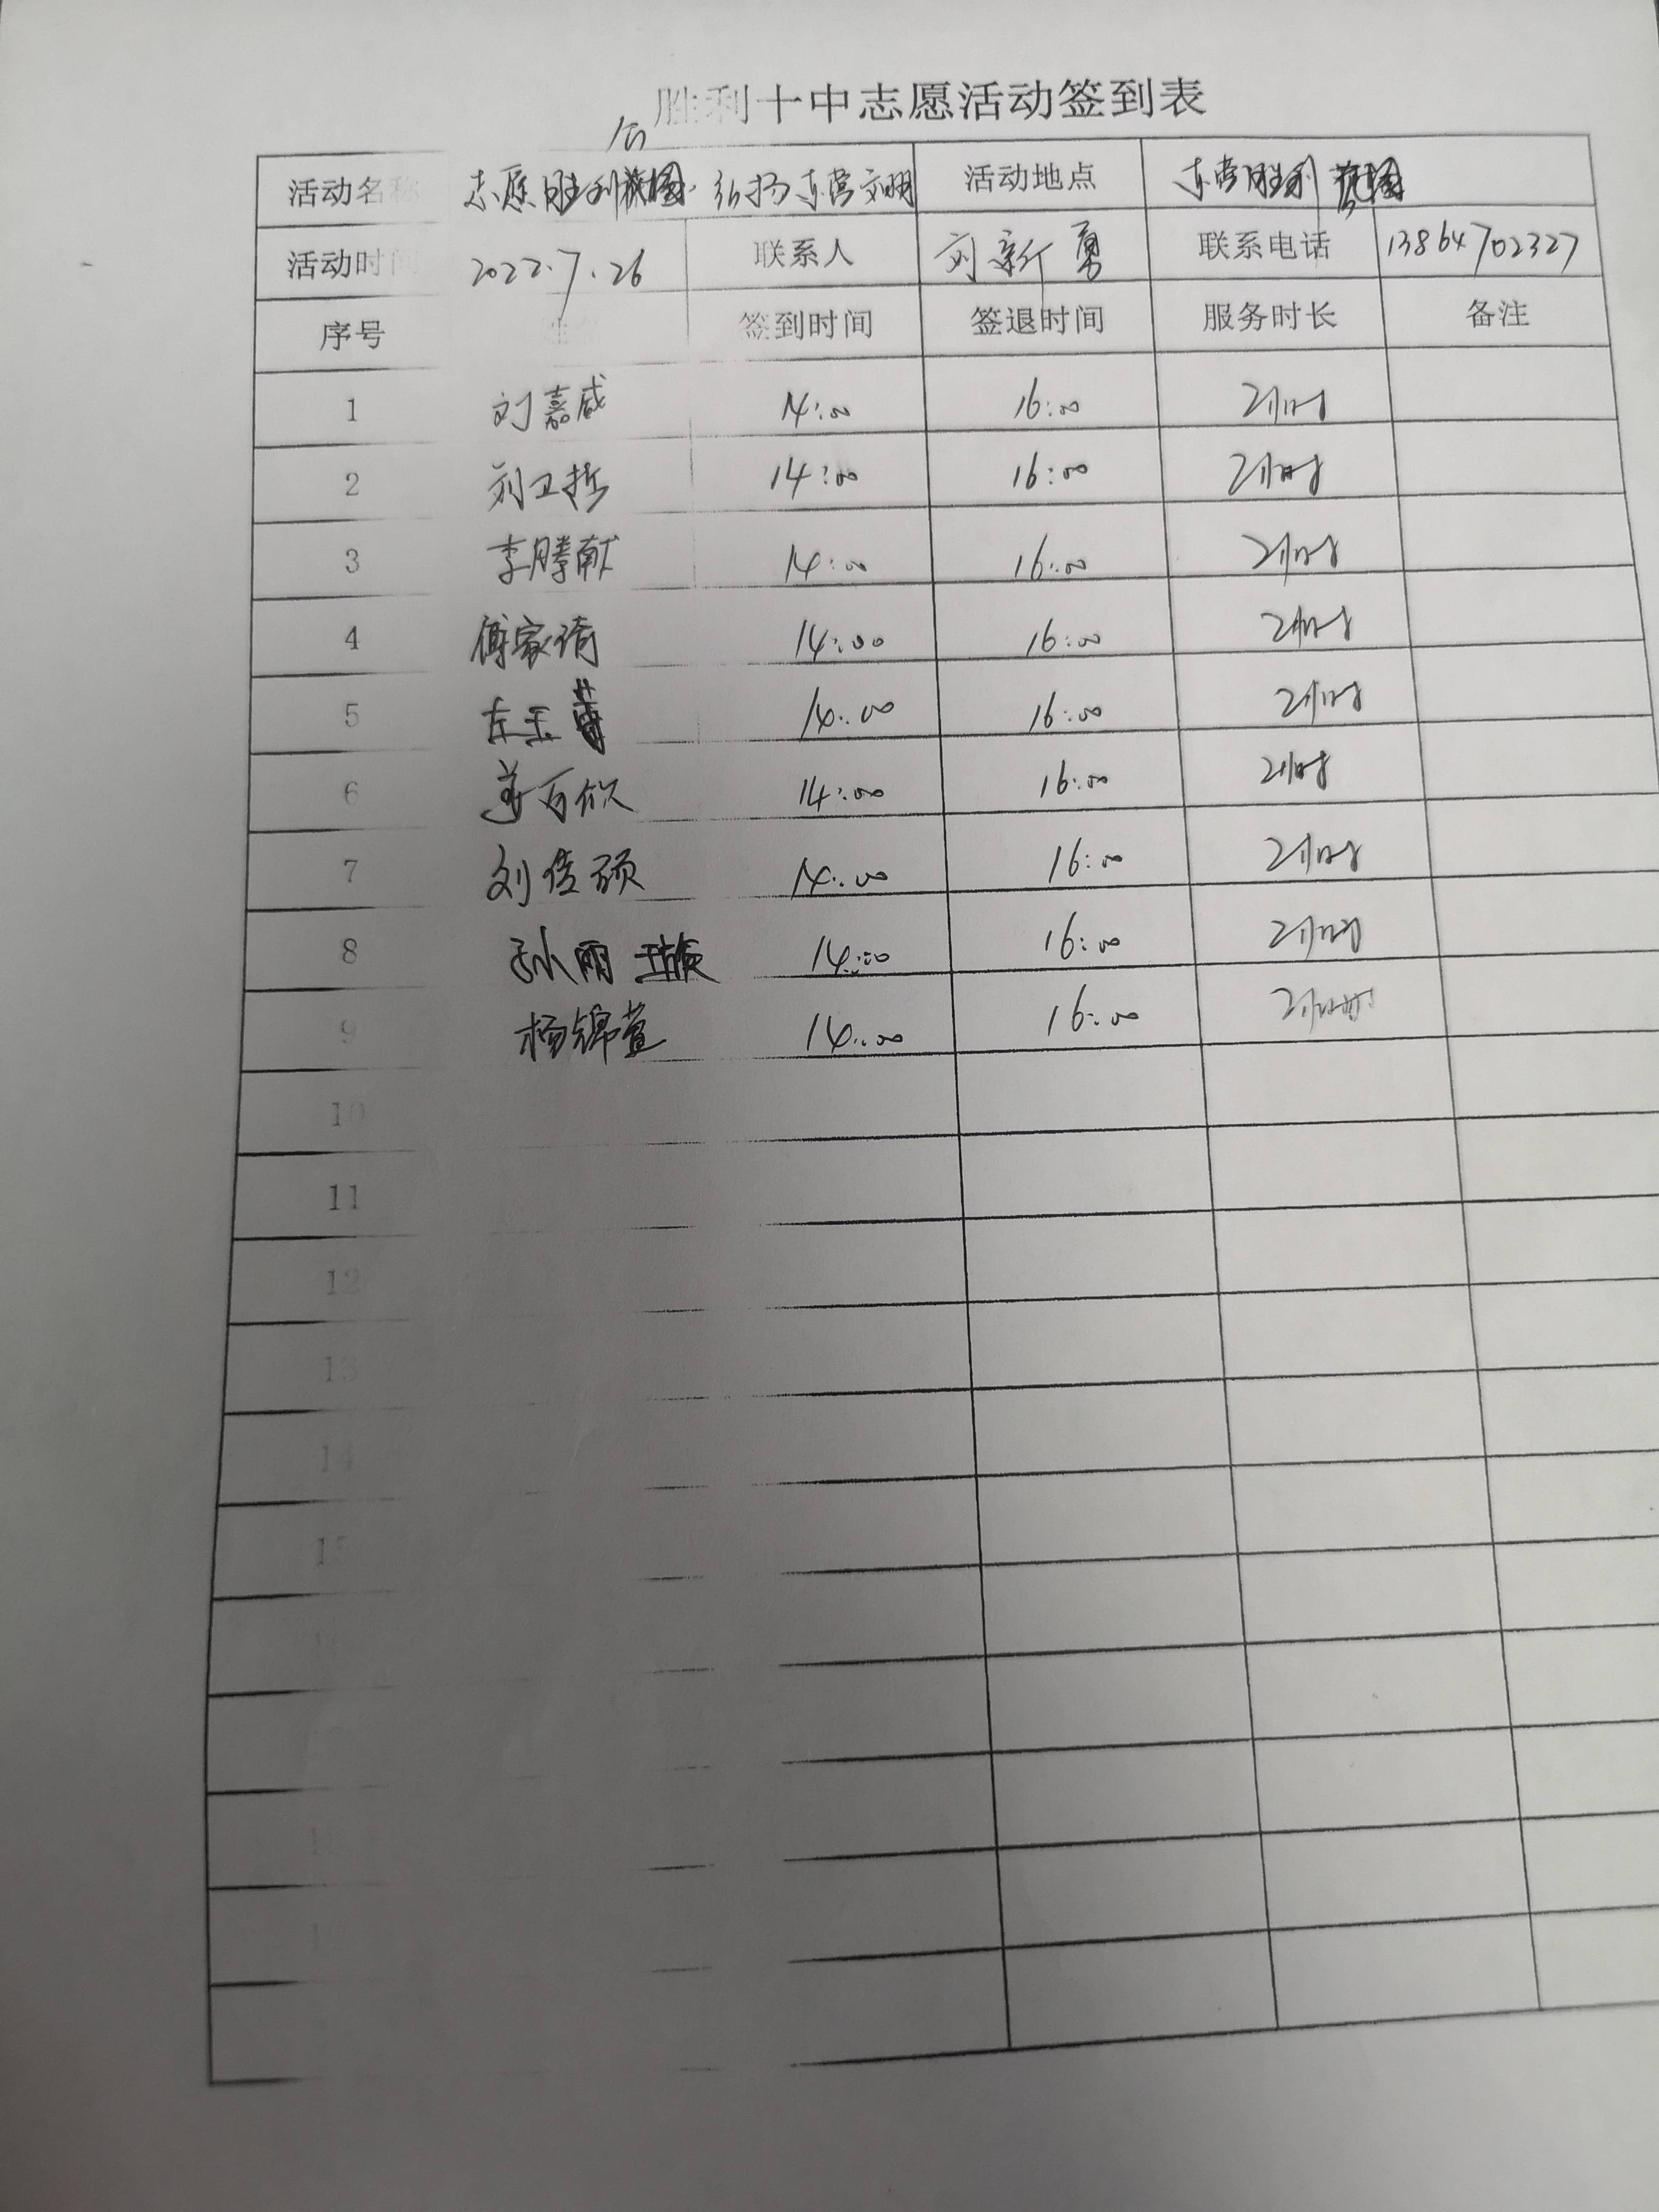 胜利十中志愿活动签到表
活动名称 志愿胜利 弘扬东营文明 活动地点 东营胜利
活动时间 2022.7.26 联系人 刘新勇 联系电话 13864702327
序号 签到时间 签退时间 服务时长 备注
1 刘嘉威 14:00 16:00 2小时
2 刘卫哲 14:00 16:00 2小时
3 李腾献 14:00 16:00 2小时
4 傅家琦 14:00 16:00 2小时
5 左玉 14:00 16:00 2小时
6 姜百欣 14:00 16:00 2小时
7 刘佳硕 14:00 16:00 2小时
8 孙丽璇 14:00 16:00 2小时
9 杨锦萱 14:00 16:00 2小时
10
11
12
13
14
15